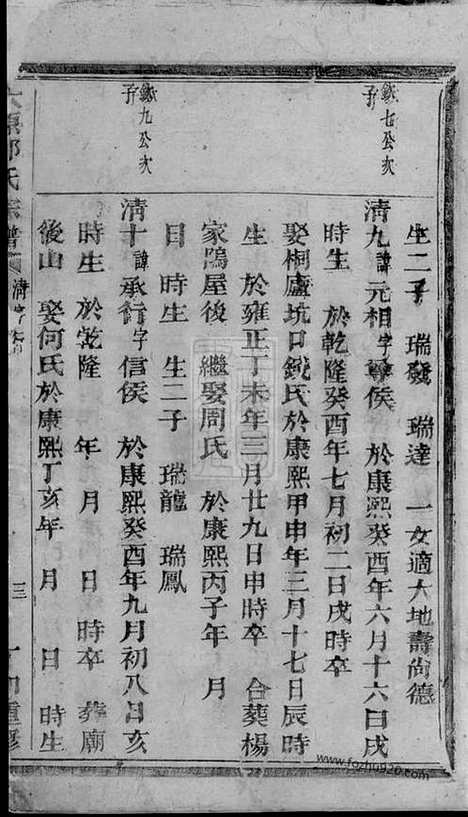 鉞七公次子
鉞九公次子
生二子 瑞發 瑞達 一女適大地壽尙德
清九諱元相字尋侯 於康熙癸酉年六月十六日戌
時生 於乾隆癸酉年七月初二日戌時卒
娶桐廬坑口鉞氏於康熙甲申年三月十七日辰時
生 於雍正丁未年三月廿九日申時卒 合葬楊
家鴿屋後 繼娶周氏 於康熙丙子年 月
日 時生 生二子 瑞龍 瑞鳳
清十諱承行字信侯 於康熙癸酉年九月初八日亥
時生 於乾隆 年 月 日 時卒 葬廟
後山 娶何氏於康熙丁亥年 月 日 時生
氏宗譜 清字
三
重修
www.fozhu920.com